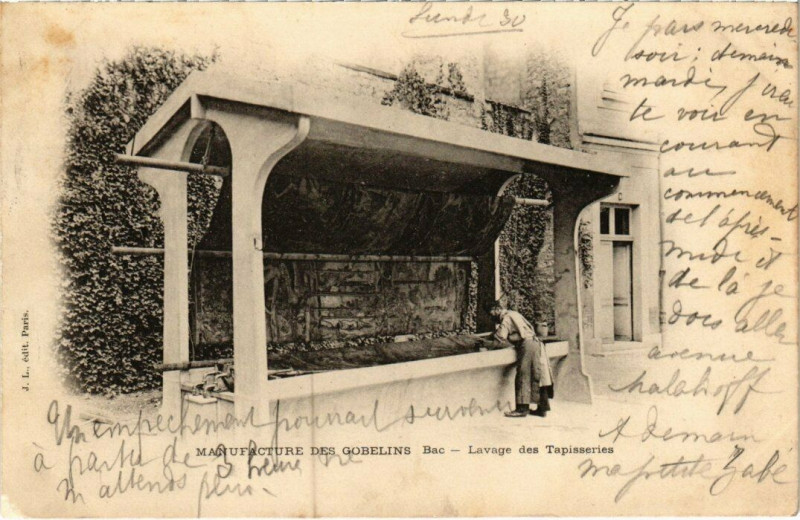 Lundi 30
Je pars mercredi
soir ; demain
mardi, j'irai
te voir en
courant
au
commencement
de l'après-
midi et
de là je
dois aller
avenue
Malakoff
A demain
ma petite Bébé
Un empêchement pourrait survenir
à partir de 3 heures ne
m'attends plus.
MANUFACTURE DES GOBELINS Bac — Lavage des Tapisseries
J. L., édit. Paris.